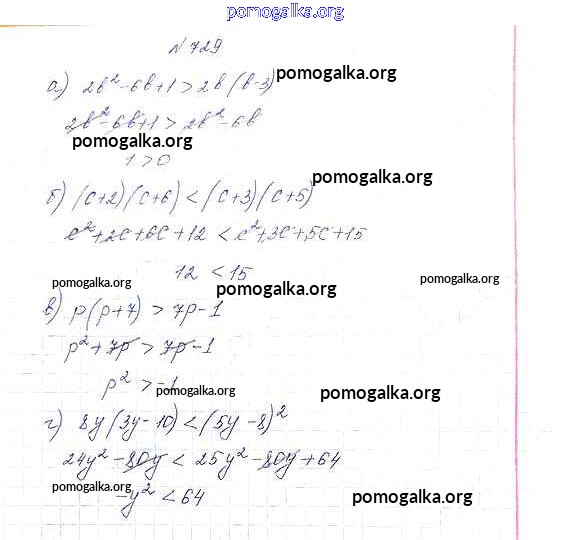 pomogalka.org
№ 729
а) 2b² - 6b + 1 > 2b (b - 3)
pomogalka.org
2b² - 6b + 1 > 2b² - 6b
pomogalka.org
1 > 0
pomogalka.org
б) (c+2)(c+6) < (c+3)(c+5)
c² + 2c + 6c + 12 < c² + 3c + 5c + 15
12 < 15
pomogalka.org
pomogalka.org
pomogalka.org
в) p(p+7) > 7p - 1
p² + 7p > 7p - 1
p² > -1
pomogalka.org
pomogalka.org
г) 8y(3y - 10) < (5y - 8)²
24y² - 80y < 25y² - 80y + 64
pomogalka.org
-y² < 64
pomogalka.org